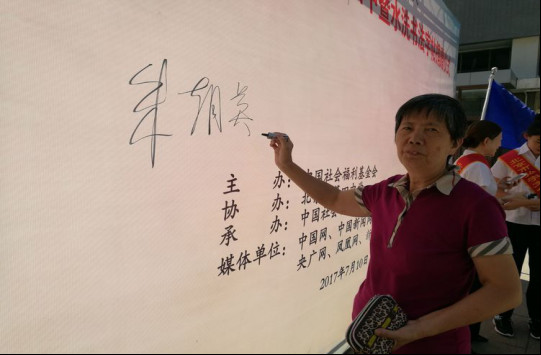 暨水洗书法学
朱朝英
主 办：中国社会福利基金会
协 办：北
承 办：中国社会
媒体单位：中国网、中国新闻网
央广网、凤凰网、
2017年7月10日